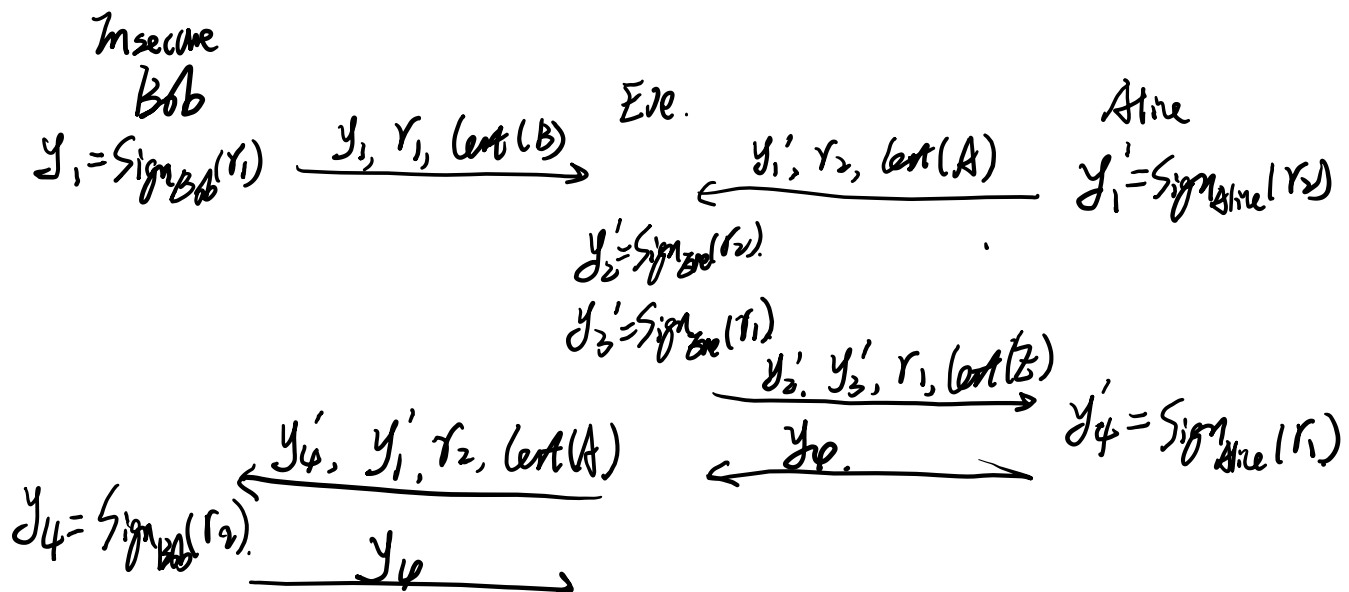 Insecure
Bob
Eve.
Alice
y₁ = Sign_Bob(r₁)
y₁, r₁, Cert(B)
y₁', r₂, Cert(A)
y₁' = Sign_Alice(r₂)
y₂' = Sign_Eve(r₂).
y₃' = Sign_Eve(r₁)
y₂'. y₃', r₁, Cert(E)
y₄' = Sign_Alice(r₁)
y₄', y₁', r₂, Cert(A)
y₄.
y₄ = Sign_Bob(r₂).
y₄